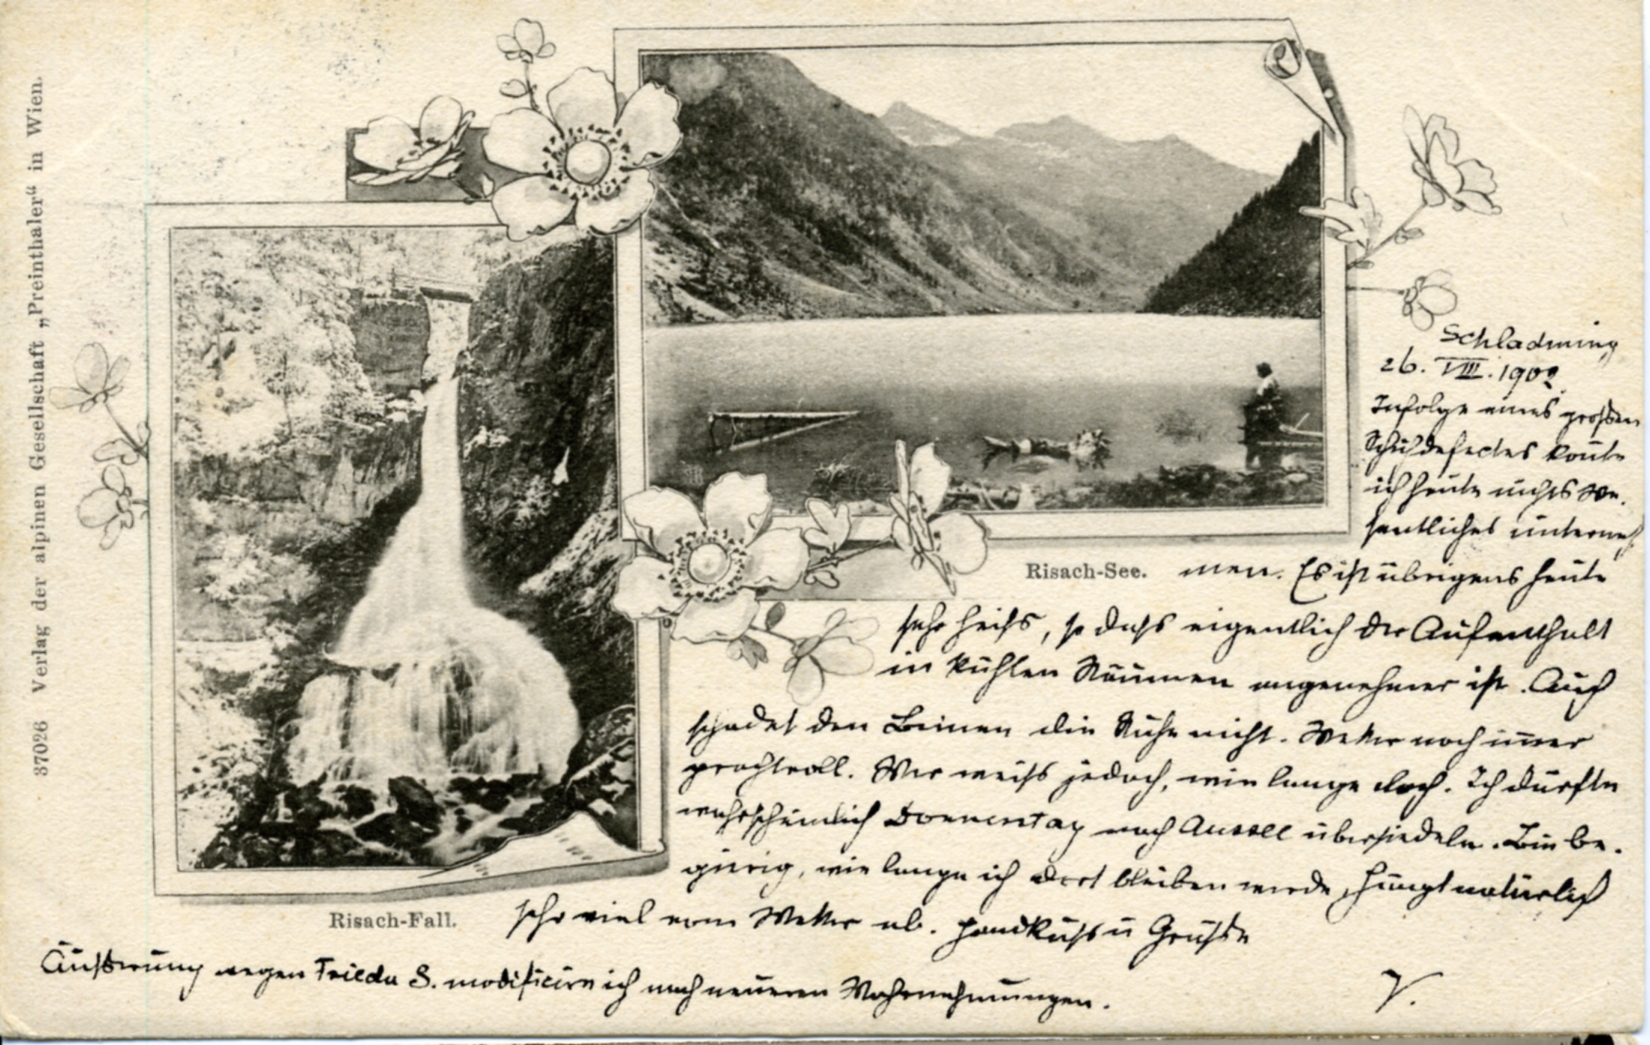 37026 Verlag der alpinen Gesellschaft „Preinthaler“ in Wien.
Schladming
26. VIII. 1902
Infolge eines großen
Schuhdefectes konte
ich heute nichts We-
sentliches unterneh-
Risach-See.
men. Es ist übrigens heute
sehr heiß, so daß eigentlich der Aufenthalt
in kühlen Räumen angenehmer ist. Auch
schadet den Beinen die Ruhe nicht. Wetter noch immer
prachtvoll. Wer weiß jedoch, wie lange noch. Ich dürfte
wahrscheinlich Donnerstag nach Aussee übersiedeln. Bin be-
gierig, wie lange ich dort bleiben werde, hängt natürlich
Risach-Fall.
sehr viel vom Wetter ab. Handkuß u Grüße
Äußerung wegen Frieda S. modificire ich nach neueren Wahrnehmungen.
V.